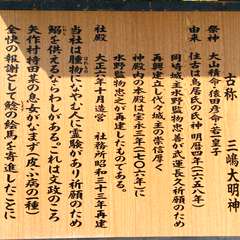 古称　三嶋大明神
祭神　大山積命・猿田彦命・若一皇子
由来　往古は鳥居氏の氏神　明暦四年（一六五八年）
岡崎城主水野監物忠善が武運長久祈願のため
再興建立し代々城主の崇信厚く
神殿内の本殿は宝永三年（一七〇六年）に
水野監物忠之が再建したものである。
社殿　大正六年十月造営　社務所昭和三十三年再建
当社は腫物になやむ人に霊験があり祈願のため
鯰を供えるならわしがある。これは文政のころ
矢作村持田某の息女がなまず（皮ふ病の一種）
全快の報謝として鯰の絵馬を寄進したことに